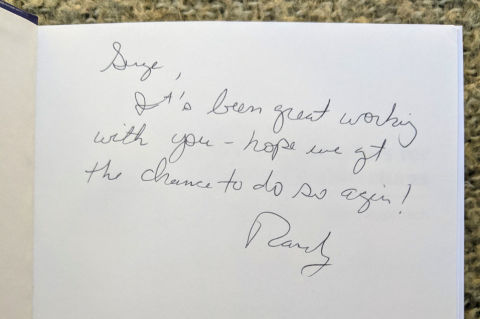 Suze,
It's been great working
with you - hope we get
the chance to do so again!
Randy